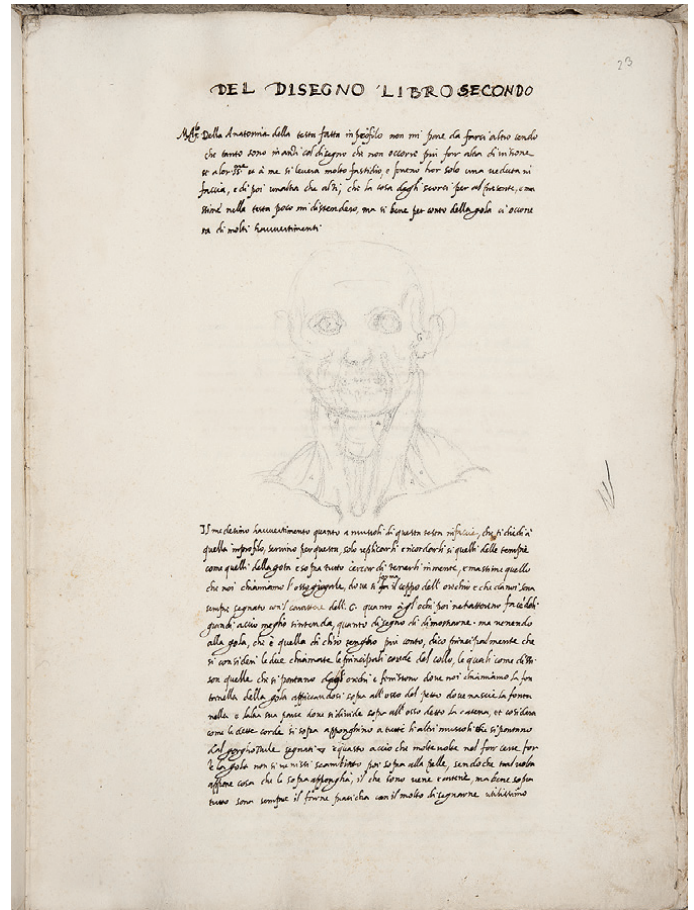 23
DEL DISEGNO LIBRO SECONDO
Della Anatomia della testa fatta in profilo non mi pare da farci altro sendo
che tanto sono inanzi col disegno che non occorre piu far altra dimitione
se à me si levera molto fastidio, e faremo hor solo una veduta in
faccia, e di poi unaltra che alzi, che la cosa degli scorci per al presente, e mas
sime nella testa poco mi distendero, ma si bene per conto della gola ci occorre
ra di molti havvertimenti
Il medesimo havvertimento quanto a muscoli di questa testa in faccia, che ti diedi à
quella in profilo, servino per questa, solo replicarti e ricordarti si quelli delle tempie
come quelli della gota e sopra tutto cercar di tenerti in mente, e massime quello
che noi chiamiamo l'osso giugale, dove si ferma il ceppo dell' orechio e che da noi sara
sempre segnato con il carattere dell. G. quanto a gl' ochi poi netratteremo facedoli
grandi accio meglio sintenda, quanto disegno di dimostrarne. ma venendo
alla gola, che è quella di chi io tengho piu conto, dico principalmente che
si consideri le due chiamate le principali corde del collo, le quali come dissi
son quelle che si partano dagl' orechi e finiscono dove noi chiamiamo la fon
tanella della gola appiccandosi sopra all' osso del petto dove nascie la fonta
nella e laltra sua parte dove si divide sopra all' osso detto la catena, et cosidera
come le dette corde si sopra apponghino a tutti li altri muscoli che si partano
dal gorghozzule segnati e questo accio che molte volte nel far certe for
ze la gola non si ne venissi scambiato poi sopra alla pelle, sendo che tal volta
appare cosa che la sopra appongha, il che come viene e interviene, ma bene sopra
tutto sara sempre il farne praticha con il molto disegnarne utilissimo